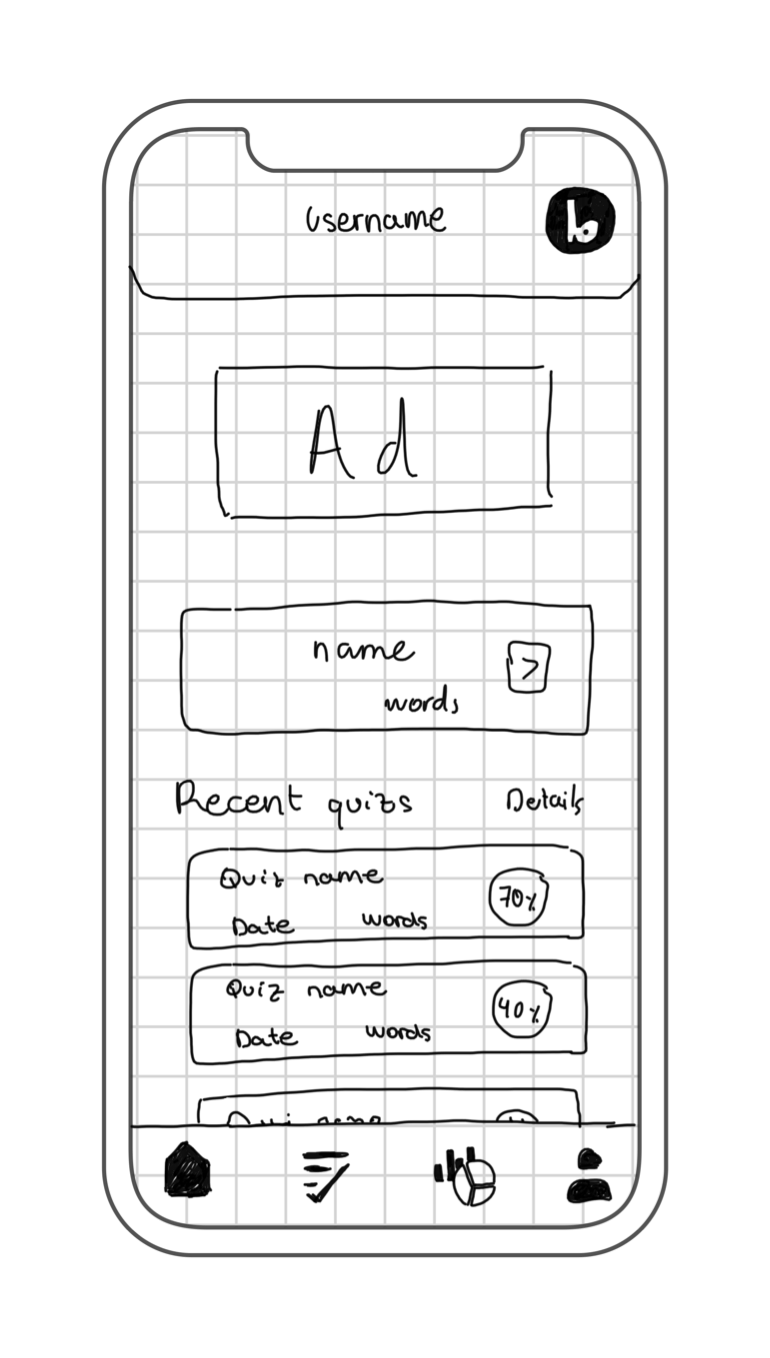 Username
b.
Ad
name
>
words
Recent quizs Details
Quiz name
70%
Date words
Quiz name
40%
Date words